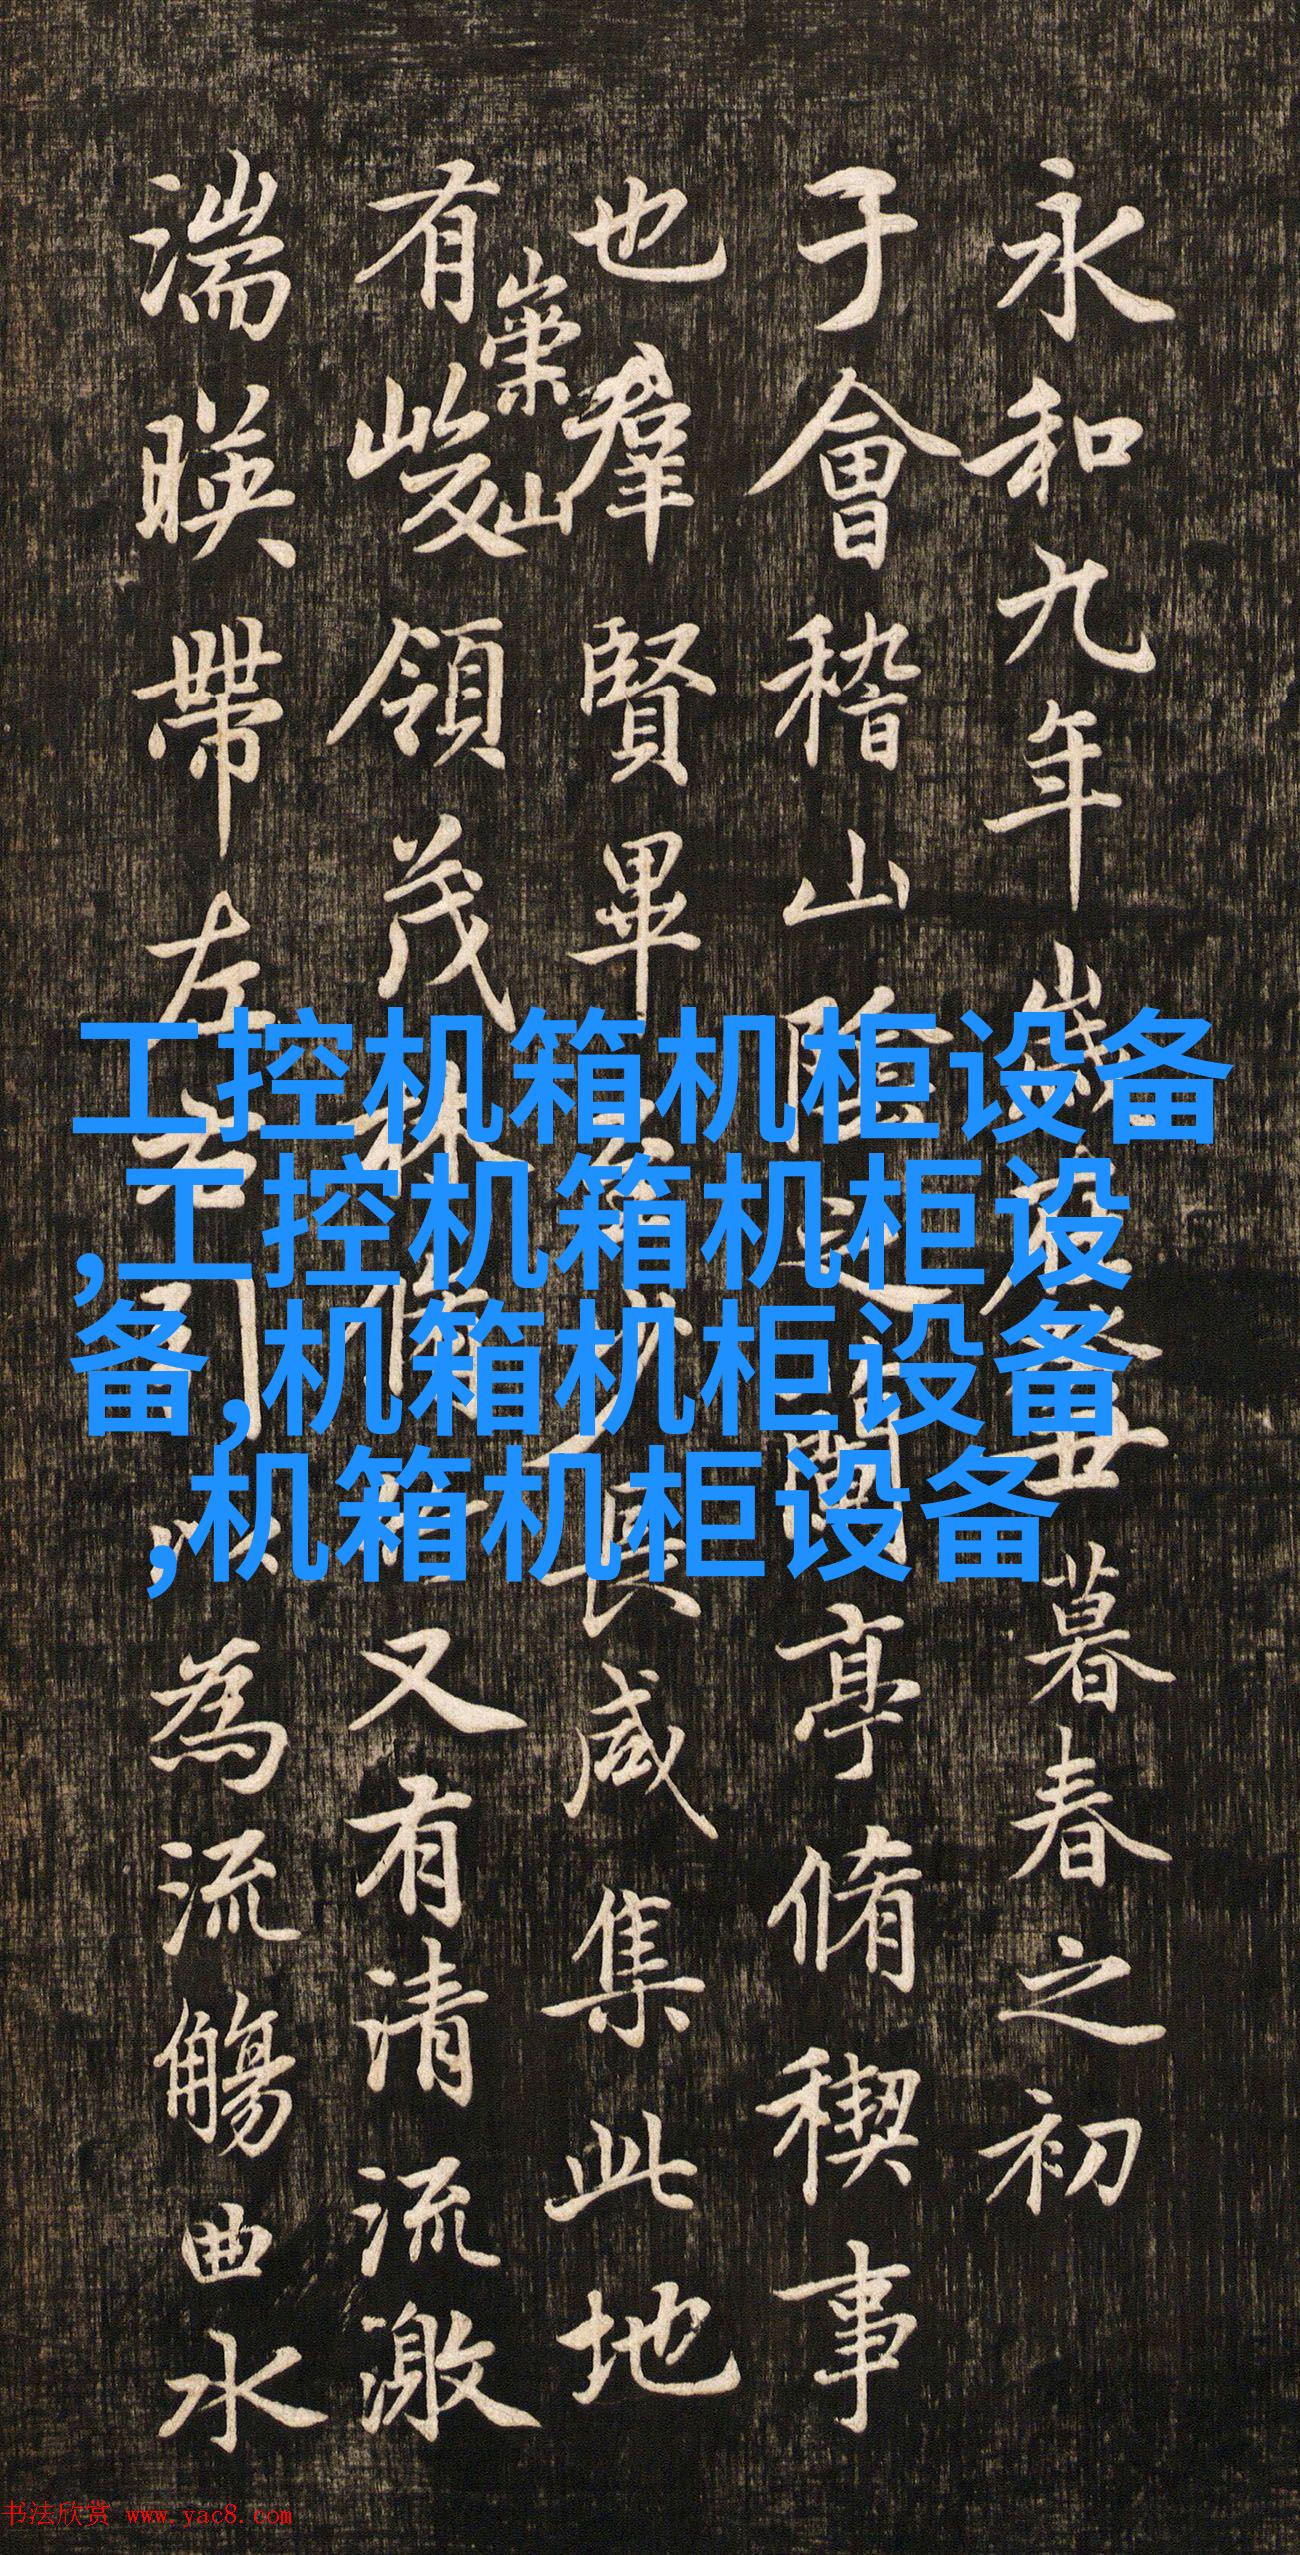 永和九年歲在癸丑暮春之初
于會稽山陰之蘭亭脩稧事
也羣賢畢至少長咸集此地
有崇山峻領茂林脩竹又有清流激
湍暎帶左右引以為流觴曲水
工控机箱机柜设备
,工控机箱机柜设
备,机箱机柜设备
,机箱机柜设备
书法欣赏 www.yac8.com